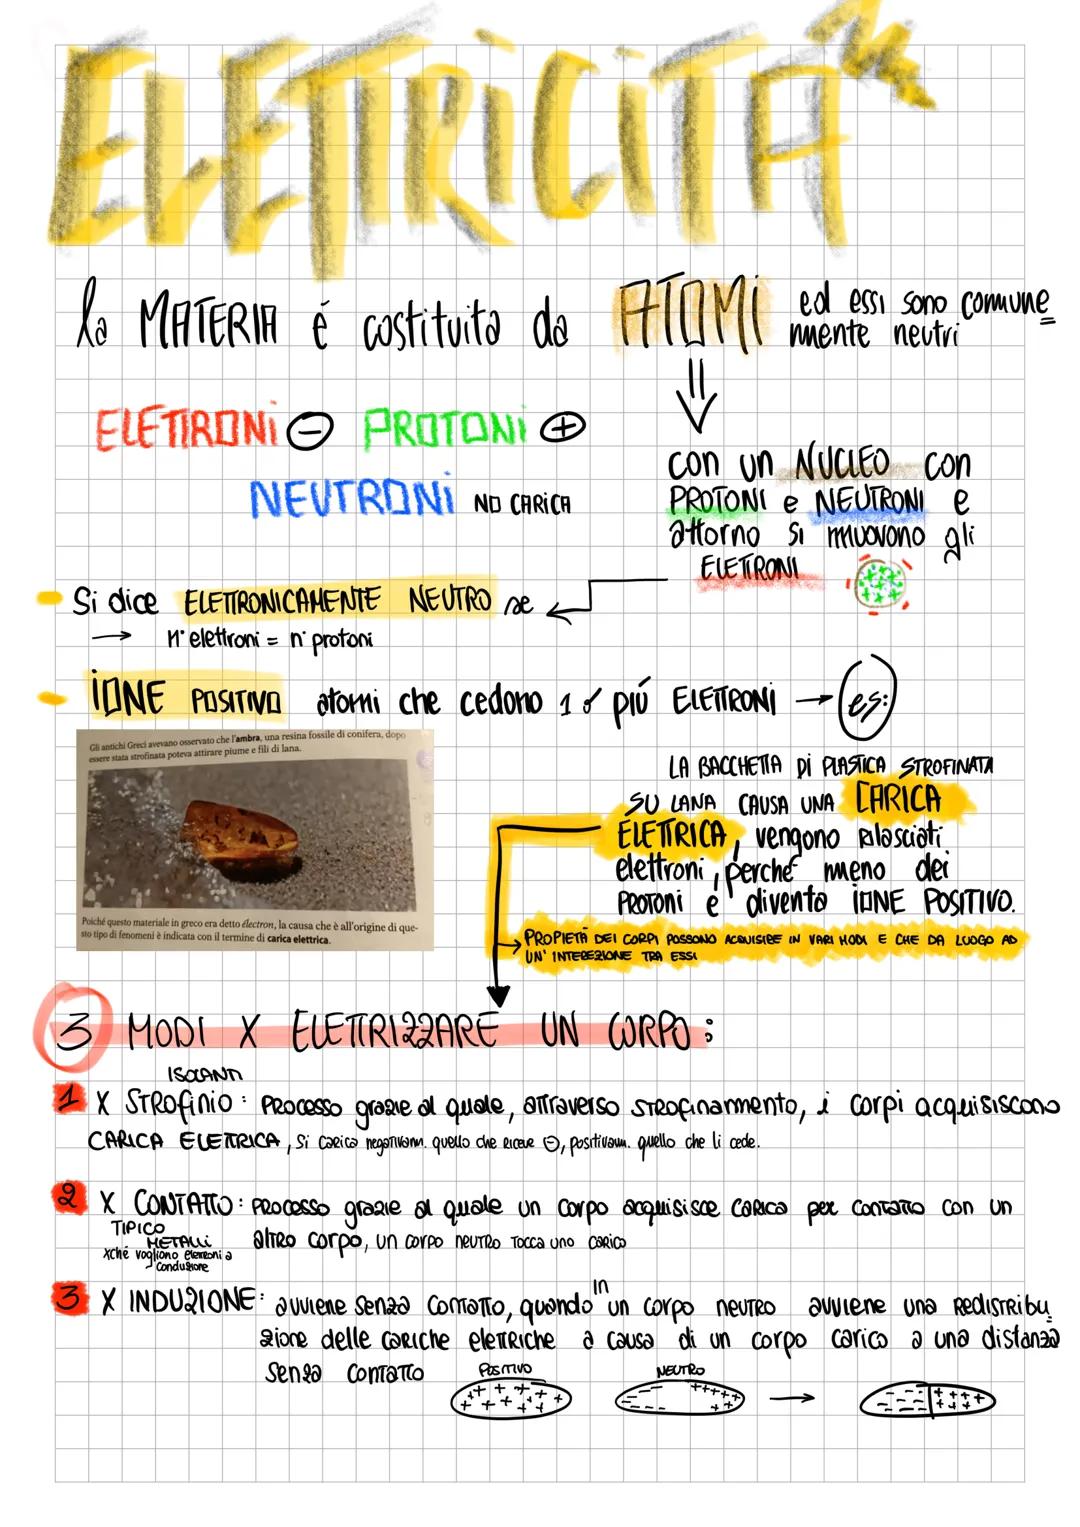 ELETTRICITÀ
la MATERIA é costituita da ATOMI ed essi sono comune
mente neutri
ELETTRONI - PROTONI +
NEUTRONI NO CARICA
con un NUCLEO con
PROTONI e NEUTRONI e
attorno si muovono gli
ELETTRONI
Si dice ELETTRONICAMENTE NEUTRO se
→ n° elettroni = n° protoni
IONE POSITIVO atomi che cedono 1 o più ELETTRONI → es:
Gli antichi Greci avevano osservato che l'ambra, una resina fossile di conifera, dopo
essere stata strofinata poteva attirare piume e fili di lana.
Poiché questo materiale in greco era detto électron, la causa che è all'origine di que-
sto tipo di fenomeni è indicata con il termine di carica elettrica.
LA BACCHETTA DI PLASTICA STROFINATA
SU LANA CAUSA UNA CARICA
ELETTRICA, vengono rilasciati
elettroni, perché meno dei
PROTONI e' diventa IONE POSITIVO.
PROPIETÀ DEI CORPI POSSONO ACQUISIRE IN VARI MODI E CHE DA LUOGO AD
UN' INTEREZIONE TRA ESSI
3 MODI X ELETTRIZZARE UN CORPO:
ISOLANTI
1 X STROFINIO: PROCESSO grazie al quale, attraverso STROFINAMMENTO, i corpi acquisiscono
CARICA ELETTRICA, si carica negativam. quello che riceve -, positivam. quello che li cede.
2 X CONTATTO: PROCESSO grazie al quale un corpo acquisisce carica per contatto con un
altro corpo, un corpo neutro tocca uno carico
TIPICO
METALLI
xché vogliono elettroni a
conduzione
3 X INDUZIONE: avviene senza contatto, quando in un corpo neutro avviene una redistribu
zione delle cariche elettriche a causa di un corpo carico a una distanza
senza contatto
POSITIVO NEUTRO →